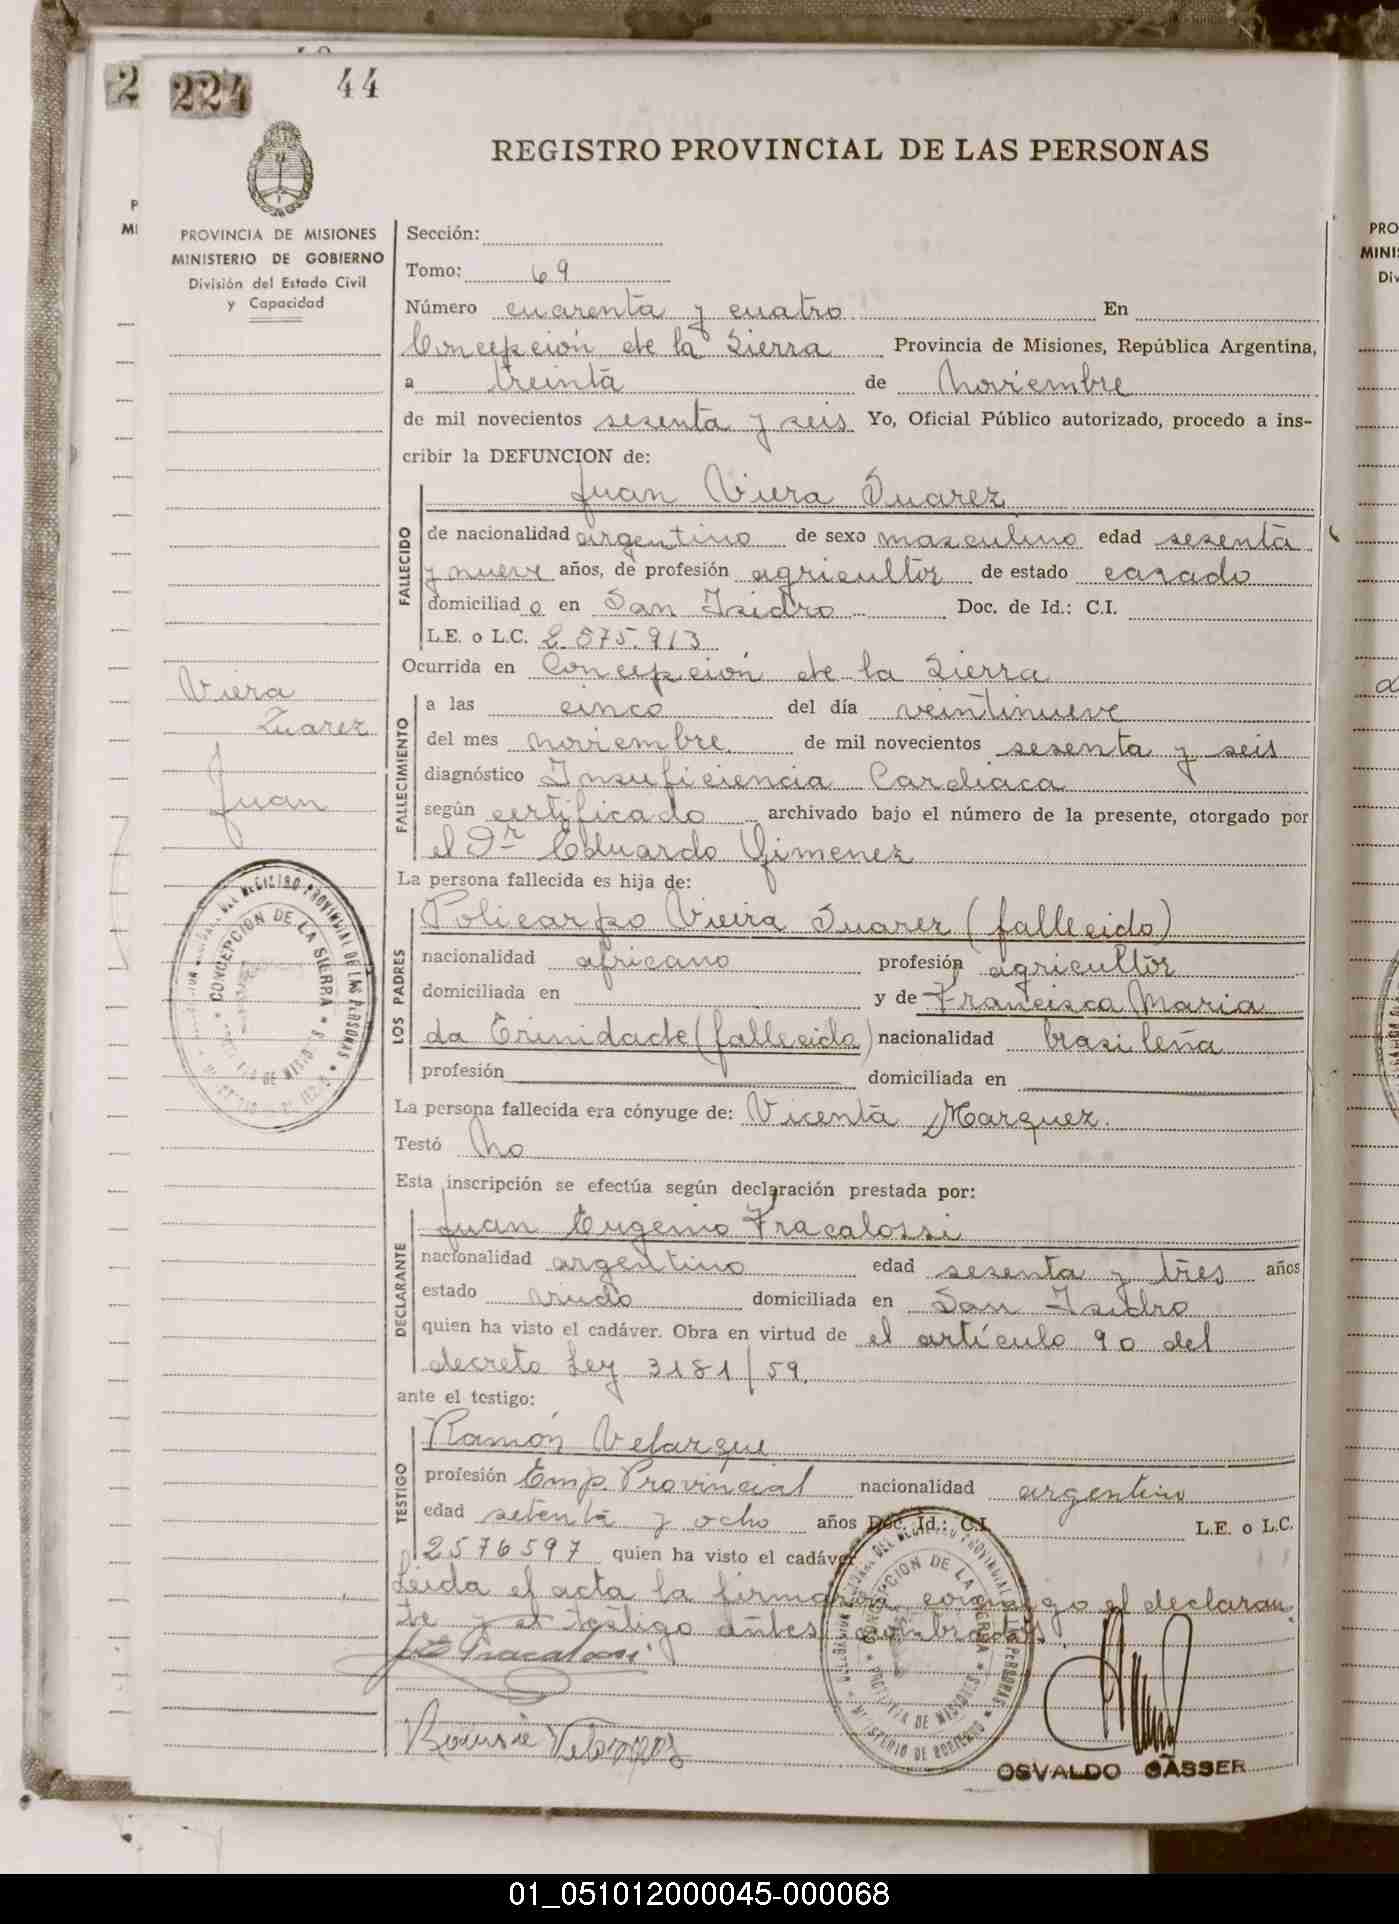 224 44
REGISTRO PROVINCIAL DE LAS PERSONAS
PROVINCIA DE MISIONES
MINISTERIO DE GOBIERNO
División del Estado Civil
y Capacidad
Sección:
Tomo: 69
Número cuarenta y cuatro En
Concepción de la Sierra Provincia de Misiones, República Argentina,
a treinta de Noviembre
de mil novecientos sesenta y seis Yo, Oficial Público autorizado, procedo a ins-
cribir la DEFUNCION de:
FALLECIDO
Juan Viera Suarez
de nacionalidad argentino de sexo masculino edad sesenta
y nueve años, de profesión agricultor de estado casado
domiciliad o en San Isidro Doc. de Id.: C.I.
L.E. o L.C. 2.575.913
Ocurrida en Concepción de la Sierra
Viera
Suarez
Juan
FALLECIMIENTO
a las cinco del día veintinueve
del mes noviembre de mil novecientos sesenta y seis
diagnóstico Insuficiencia Cardiaca
según certificado archivado bajo el número de la presente, otorgado por
el Dr Eduardo Gimenez
La persona fallecida es hija de:
LOS PADRES
Policarpo Vieira Suarez (fallecido)
nacionalidad africano profesión agricultor
domiciliada en y de Francisca Maria
da Trinidade (fallecida) nacionalidad brasileña
profesión domiciliada en
La persona fallecida era cónyuge de: Vicenta Marquez.
Testó No
Esta inscripción se efectúa según declaración prestada por:
DECLARANTE
Juan Eugenio Fracalossi
nacionalidad argentino edad sesenta y tres años
estado viudo domiciliada en San Isidro
quien ha visto el cadáver. Obra en virtud de el artículo 90 del
decreto Ley 3181/59.
ante el testigo:
TESTIGO
Ramón Velazque
profesión Emp. Provincial nacionalidad argentino
edad setenta y ocho años Doc. Id.: C.I. L.E. o L.C.
2576597 quien ha visto el cadáver
Leida el acta la firmaron conmigo el declaran
te y el testigo antes nombrados.
CONCEPCION DE LA SIERRA
REGISTRO PROVINCIAL DE LAS PERSONAS
PROVINCIA DE MISIONES
MINISTERIO DE GOBIERNO
OSVALDO GÄSSER
01_051012000045-000068